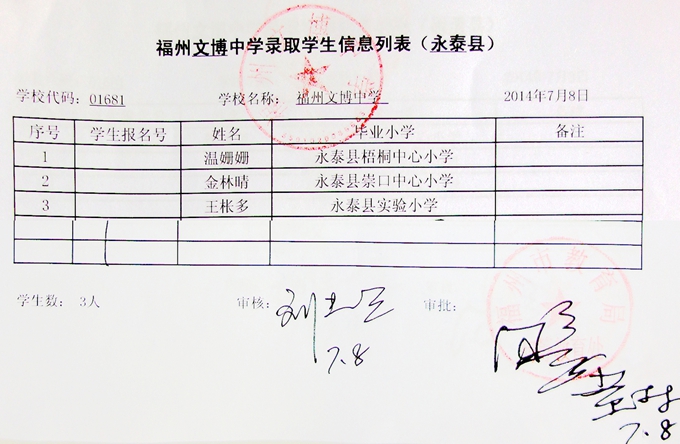 福州文博中学录取学生信息列表（永泰县）
学校代码：01681 学校名称： 福州文博中学 2014年7月8日
序号 学生报名号 姓名 毕业小学 备注
1 温姗姗 永泰县梧桐中心小学
2 金林晴 永泰县崇口中心小学
3 王枨多 永泰县实验小学
学生数： 3人 审核： 审批：
福州市教育局
7.8
7.8